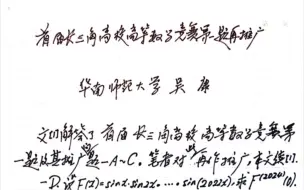 首届长三角高校高等数学竞赛第一题再推广
华南师范大学 吴康
文[1]解答了首届长三角高校高等数学竞赛第
一题及其推广题一A~C. 笔者对 再作推广, 本文续[1].
一D. 设F(x)=sinx·sin2x·…·sin(2022x), 求F⁽²⁰²⁰⁾(0)